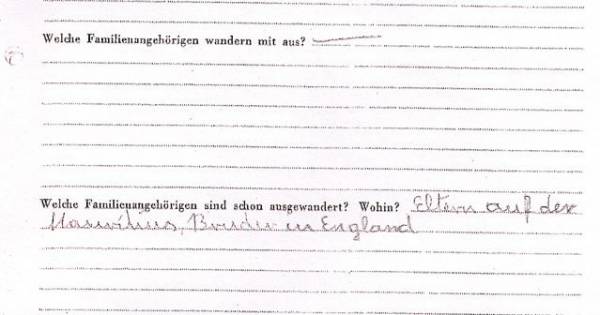 Welche Familienangehörigen wandern mit aus? —
Welche Familienangehörigen sind schon ausgewandert? Wohin? Eltern auf der
Mauritius, Bruder in England